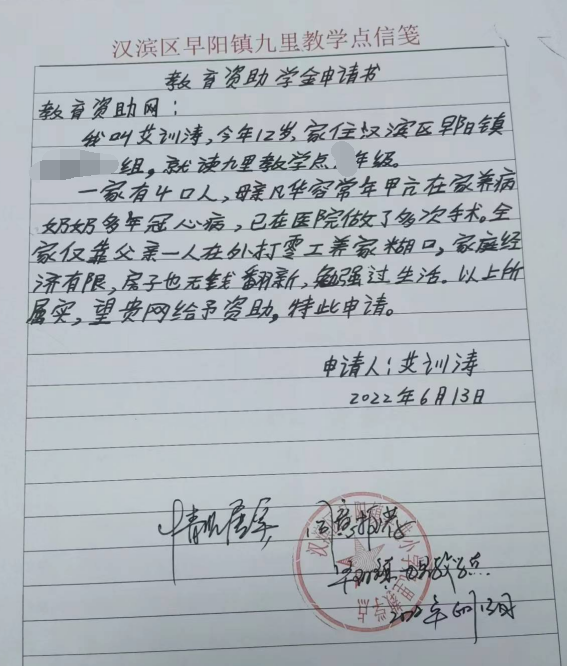 汉滨区早阳镇九里教学点信笺
教育资助学金申请书
教育资助网：
我叫艾训涛，今年12岁，家住汉滨区早阳镇
组，就读九里教学点 年级。
一家有4口人，母亲凡华容常年甲亢在家养病
奶奶多年冠心病，已在医院做了多次手术。全
家仅靠父亲一人在外打零工养家糊口，家庭经
济有限，房子也无钱翻新，勉强过生活。以上所
属实，望贵网给予资助，特此申请。
申请人：艾训涛
2022年6月13日
情况属实 同意推荐
早阳镇九里教学点
2022年6月13日